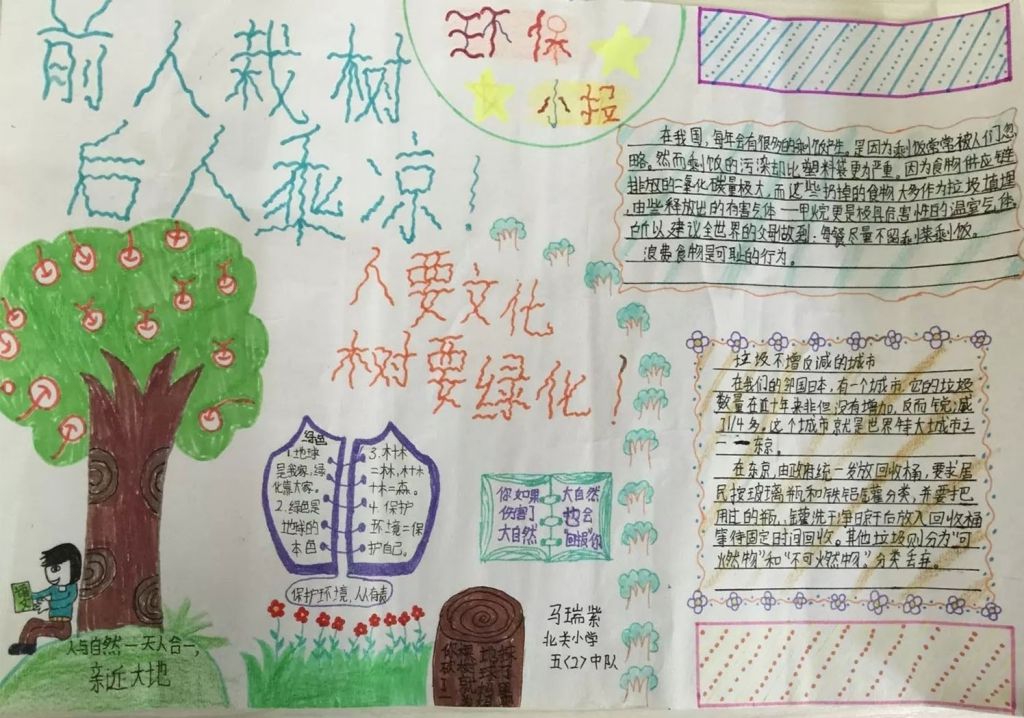 前人栽树
后人乘凉！
环保
小报
人要文化
树要绿化！
在我国，每年会有很多的剩饭产生。是因为剩饭常常被人们忽
略。然而剩饭的污染却比塑料袋更为严重，因为食物供应链
排放的二氧化碳量极大，而这些扔掉的食物大多作为垃圾填埋
，由此释放出的有害气体——甲烷更是极具危害性的温室气体。
所以建议全世界的父母做到，每餐尽量不留剩菜剩饭。
浪费食物是可耻的行为。
垃圾不增反减的城市
在我们的邻国日本，有一个城市，它的垃圾
数量在近十年来非但没有增加，反而锐减
了1/4多。这个城市就是世界特大城市之
一——东京。
在东京，由政府统一发放回收桶，要求居
民按玻璃瓶和铁铝底罐分类，并要把
用过的瓶，罐洗干净晾干后放入回收桶
等待固定时间回收。其他垃圾则分为"可
燃物"和"不可燃物"，分类丢弃。
绿色
1.地球
是我家，绿
化靠大家。
2.绿色是
地球的
本色
3.木+木
=林，木+木
+木=森。
4.保护
环境=保
护自己。
保护环境，从有责
你如果
伤害了
大自然
大自然
也会
"回报"你
人与自然一天人合一，
亲近大地
马瑞紫
北关小学
五〈2〉中队